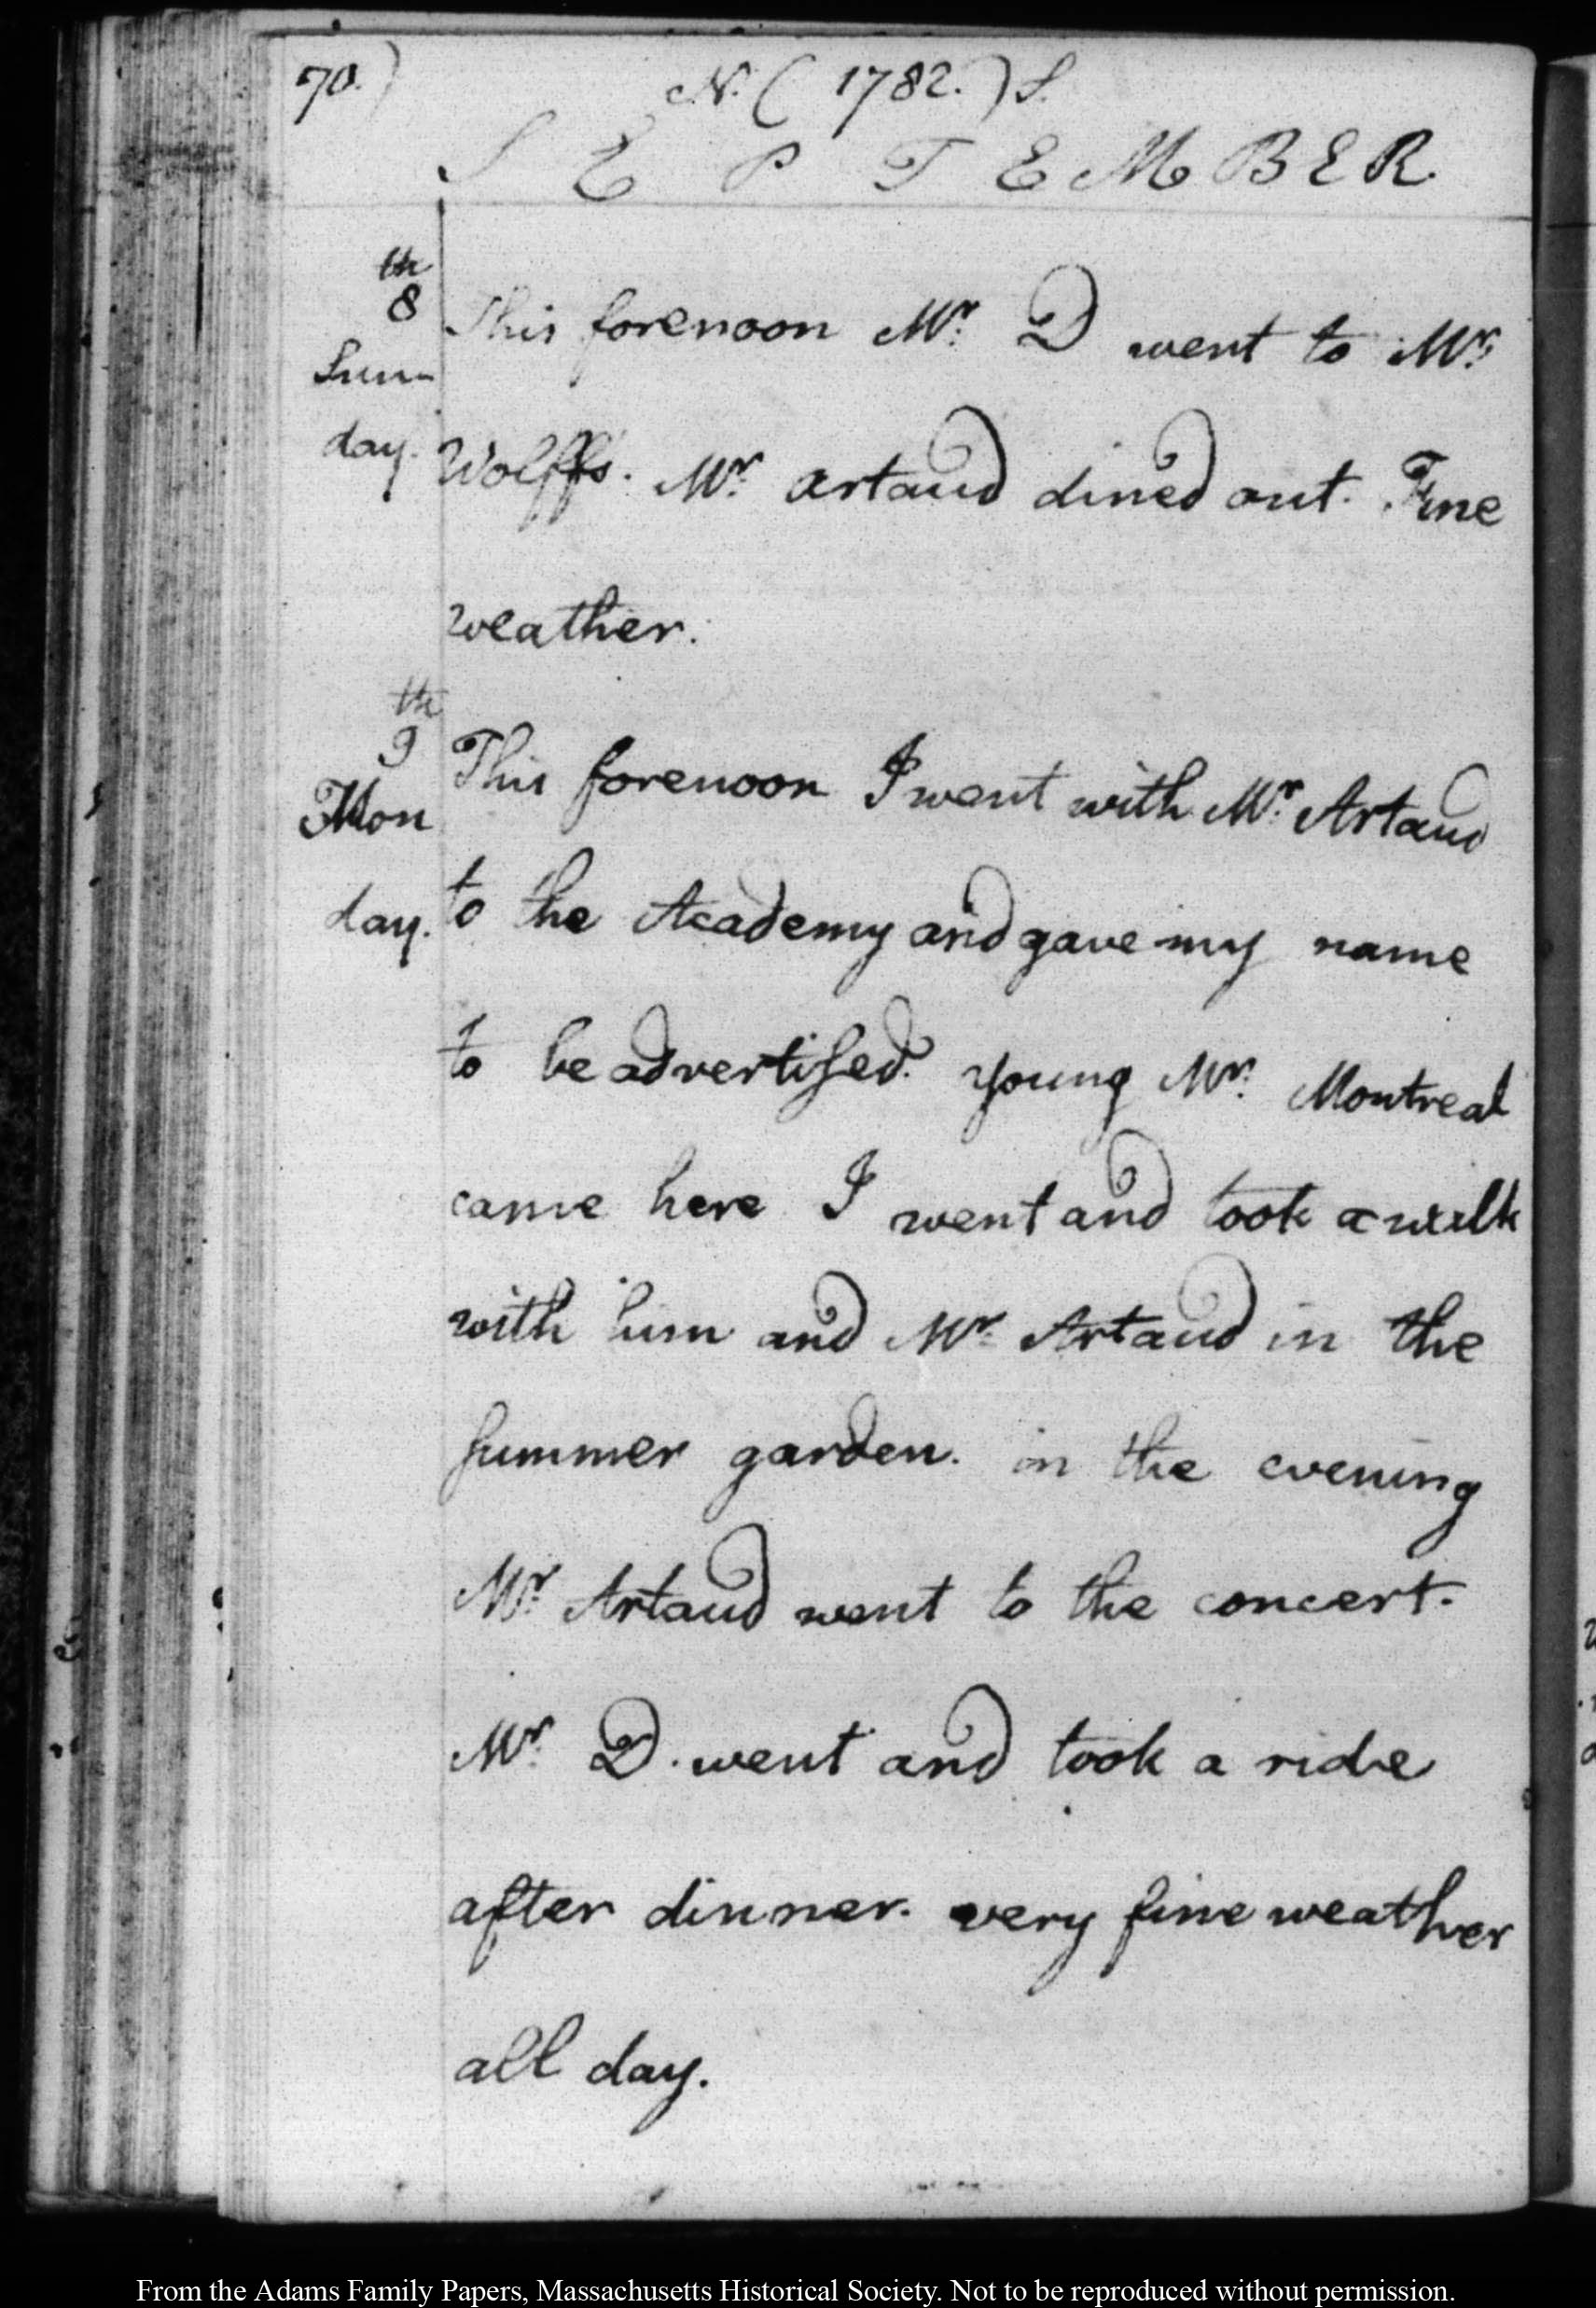 70.)
N. ( 1782. ) S.
SEPTEMBER.
8th Sunday. This forenoon Mr. D went to Mr.
Wolffs. Mr. Artaud dined out. Fine
weather.
9th Monday. This forenoon I went with Mr. Artaud
to the Academy and gave my name
to be advertised. Young Mr. Montreal
came here I went and took a walk
with him and Mr. Artaud in the
summer garden. in the evening
Mr. Artaud went to the concert.
Mr. D. went and took a ride
after dinner. very fine weather
all day.
From the Adams Family Papers, Massachusetts Historical Society. Not to be reproduced without permission.